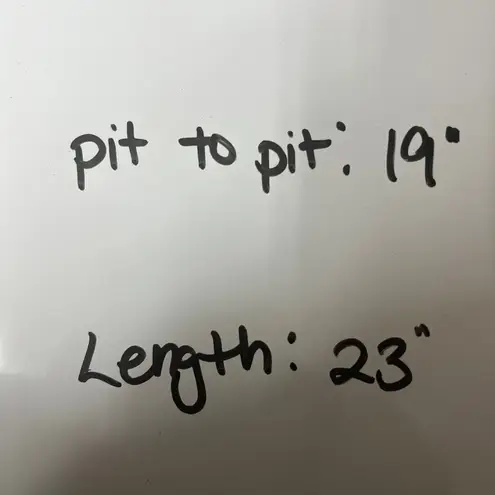 pit to pit: 19"
Length: 23"